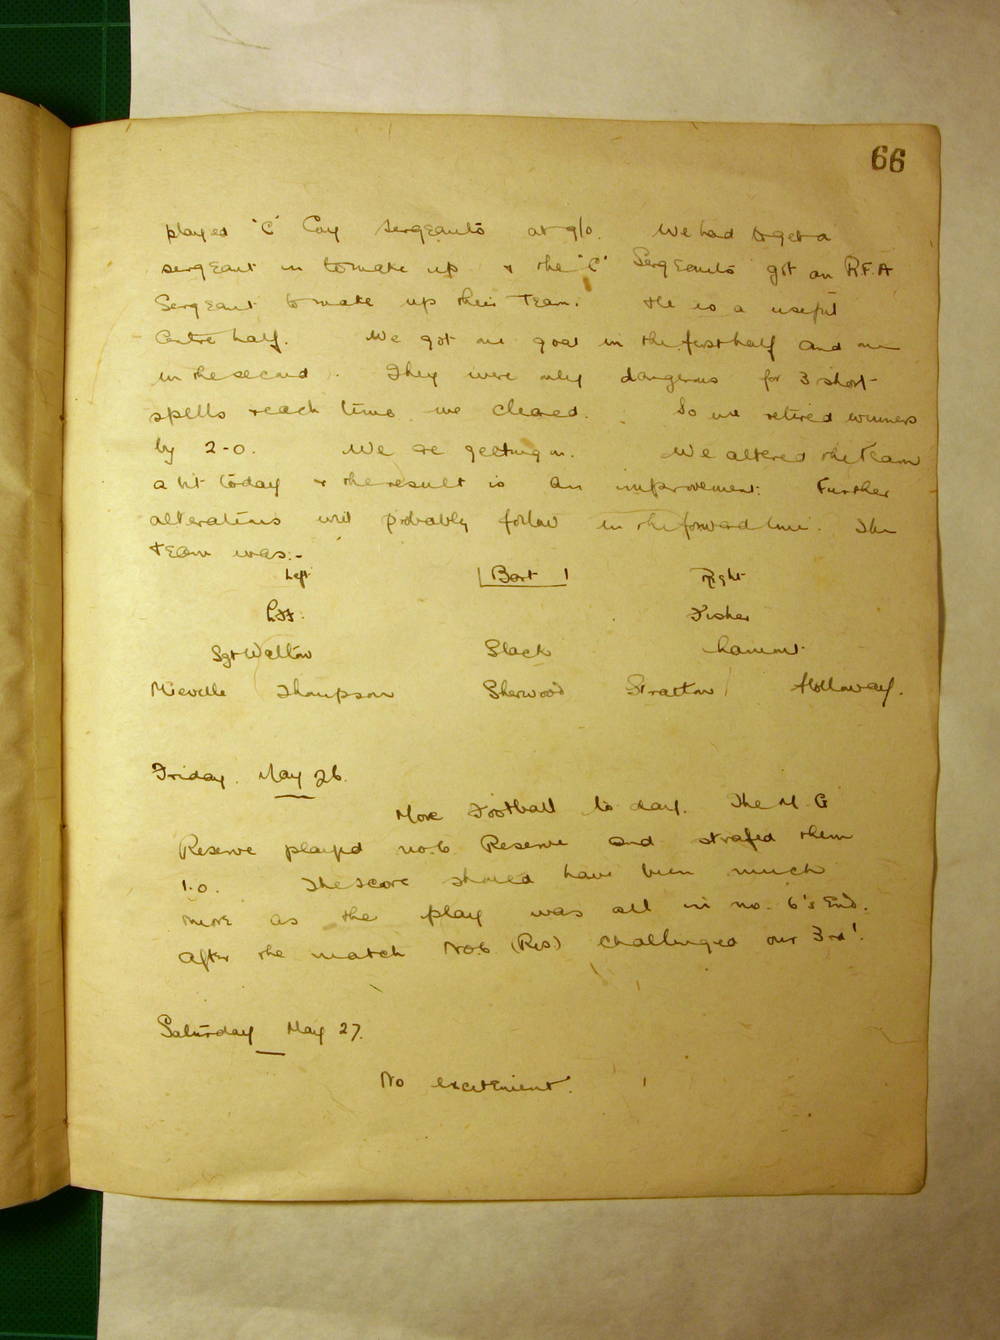 66
played "C" Coy Sergeants at 9/0. We had to get a
sergeant in to make up & the "C" Sergeants got an R.F.A
Sergeant to make up their Team. He is a useful
Centre half. We got one goal in the first half and one
in the second. They were only dangerous for 3 short
spells & each time we cleared. So we retired winners
by 2-0. We are getting on. We altered the Team
a bit today & the result is an improvement. Further
alterations will probably follow in the forward line. The
team was:-
Left Bart Right
Fisher
Sgt Walton Slack Lamont
Mieville Thompson Sherwood Stratton Holloway.
Friday. May 26.
More Football to day. The M. G
Reserve played No.6 Reserve and strafed them
1.0. The score should have been much
more as the play was all in no. 6's End.
After the match No6 (Res) challenged our 3rd!
Saturday May 27.
No excitement.